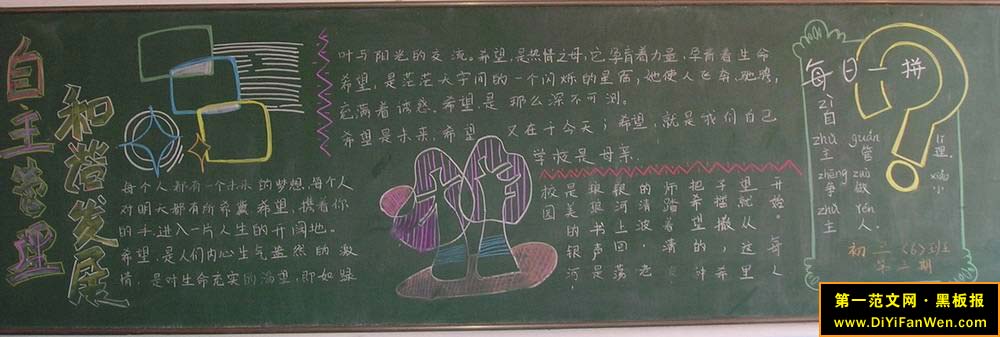 自主管理
和谐发展
每个人都有一个未来的梦想,每个人
对明天都有所希冀希望,携着你
的手进入一片人生的开阔地。
希望,是人们内心生气盎然的激
情,是对生命充实的渴望,即如绿
叶与阳光的交流。希望,是热情之母,它孕育着力量,孕育着生命
希望,是茫茫天宇间的一个闪烁的星宿,她使人飞奔、驰骋,
充满着诱惑。希望是 那么深不可测。
希望是未来,希望 又在于今天;希望,就是我们自己
学校是母亲
校园
是美的银河
书声是
银河上回荡
的清波
师踏着清
把希望的种
子播撒,希
望就从这里
开始。每人
每日一拼
zì
自
zhǔ guǎn lǐ
主管理.
zhēng zuò xiǎo
争做小
zhǔ rén
主人.
初二(6)班
第二期
第一范文网·黑板报
www.DiYiFanWen.com